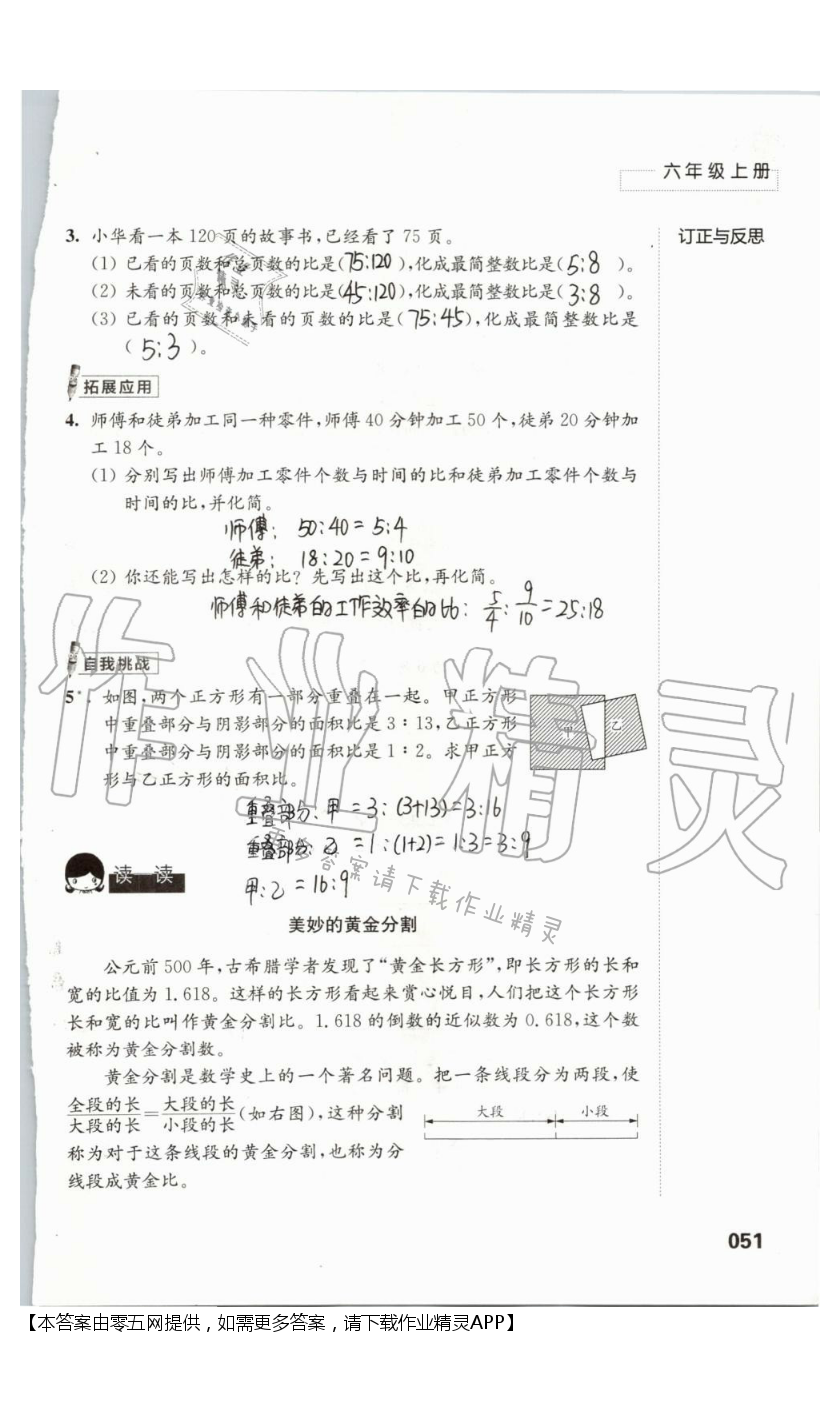 六年级上册
订正与反思
3. 小华看一本 120 页的故事书,已经看了 75 页。
(1) 已看的页数和总页数的比是(75:120),化成最简整数比是(5:8)。
(2) 未看的页数和总页数的比是(45:120),化成最简整数比是(3:8)。
(3) 已看的页数和未看的页数的比是(75:45),化成最简整数比是
(5:3)。
拓展应用
4. 师傅和徒弟加工同一种零件,师傅 40 分钟加工 50 个,徒弟 20 分钟加
工 18 个。
(1) 分别写出师傅加工零件个数与时间的比和徒弟加工零件个数与
时间的比,并化简。
师傅: 50:40=5:4
徒弟: 18:20=9:10
(2) 你还能写出怎样的比? 先写出这个比,再化简。
师傅和徒弟的工作效率的比: 5/4:9/10=25:18
自我挑战
5*. 如图,两个正方形有一部分重叠在一起。甲正方形
中重叠部分与阴影部分的面积比是 3∶13,乙正方形
中重叠部分与阴影部分的面积比是 1∶2。求甲正方
形与乙正方形的面积比。
甲
乙
重叠部分:甲=3:(3+13)=3:16
重叠部分:乙=1:(1+2)=1:3=3:9
甲:乙=16:9
读一读
美妙的黄金分割
公元前 500 年,古希腊学者发现了“黄金长方形”,即长方形的长和
宽的比值为 1.618。这样的长方形看起来赏心悦目,人们把这个长方形
长和宽的比叫作黄金分割比。1.618 的倒数的近似数为 0.618,这个数
被称为黄金分割数。
黄金分割是数学史上的一个著名问题。把一条线段分为两段,使
全段的长/大段的长=大段的长/小段的长(如右图),这种分割
称为对于这条线段的黄金分割,也称为分
线段成黄金比。
大段 小段
051
作业精灵
更多答案请下载作业精灵
【本答案由零五网提供,如需更多答案,请下载作业精灵APP】